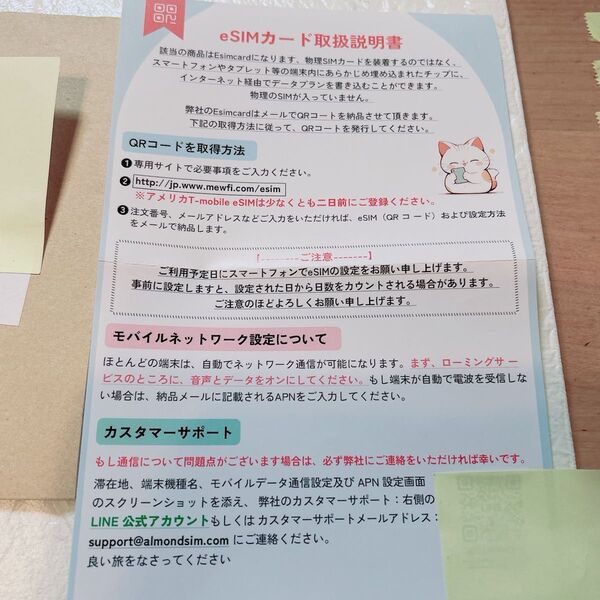 eSIMカード取扱説明書
該当の商品はEsimcardになります、物理SIMカードを装着するのではなく、
スマートフォンやタブレット等の端末内にあらかじめ埋め込まれたチップに、
インターネット経由でデータプランを書き込むことができます。
物理のSIMが入っていません。
弊社のEsimcardはメールでQRコードを納品させて頂きます。
下記の取得方法に従って、QRコードを発行してください。
QRコードを取得方法
❶専用サイトで必要事項をご入力ください。
❷http://jp.www.mewfi.com/esim
※アメリカT-mobile eSIMは少なくとも二日前にご登録ください。
❸注文番号、メールアドレスなどご入力をいただければ、eSIM（QR コード）および設定方法
をメールで納品します。
【--------ご注意-------】
ご利用予定日にスマートフォンでeSIMの設定をお願い申し上げます。
事前に設定しますと、設定された日から日数をカウントされる場合があります。
ご注意のほどよろしくお願い申し上げます。
モバイルネットワーク設定について
ほとんどの端末は、自動でネットワーク通信が可能になります。まず、ローミングサー
ビスのところに、音声とデータをオンにしてください。もし端末が自動で電波を受信しな
い場合は、納品メールに記載されるAPNをご入力してください。
カスタマーサポート
もし通信について問題点がございます場合は、必ず弊社にご連絡をいただければ幸いです。
滞在地、端末機種名、モバイルデータ通信設定及び APN 設定画面
のスクリーンショットを添え、弊社のカスタマーサポート：右側の
LINE 公式アカウントもしくは カスタマーサポートメールアドレス：
support@almondsim.com にご連絡ください。
良い旅をなさってください